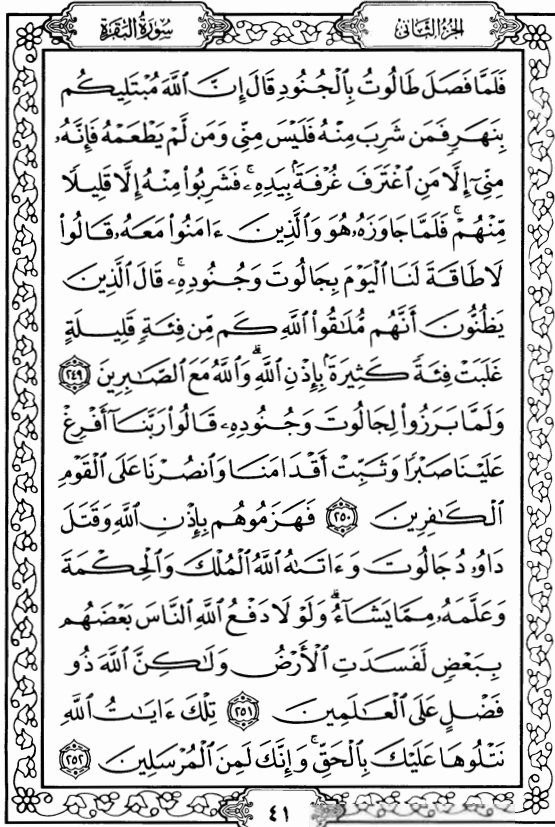 الجزء الثاني
سورة البقرة
فَلَمَّا فَصَلَ طَالُوتُ بِالْجُنُودِ قَالَ إِنَّ اللَّهَ مُبْتَلِيكُم
بِنَهَرٍ فَمَن شَرِبَ مِنْهُ فَلَيْسَ مِنِّي وَمَن لَّمْ يَطْعَمْهُ فَإِنَّهُۥ
مِنِّيٓ إِلَّا مَنِ ٱغْتَرَفَ غُرْفَةًۢ بِيَدِهِۦۚ فَشَرِبُوا۟ مِنْهُ إِلَّا قَلِيلًا
مِّنْهُمْۚ فَلَمَّا جَاوَزَهُۥ هُوَ وَٱلَّذِينَ ءَامَنُوا۟ مَعَهُۥ قَالُوا۟
لَا طَاقَةَ لَنَا ٱلْيَوْمَ بِجَالُوتَ وَجُنُودِهِۦۚ قَالَ ٱلَّذِينَ
يَظُنُّونَ أَنَّهُم مُّلَٰقُوا۟ ٱللَّهِ كَم مِّن فِئَةٍ قَلِيلَةٍ
غَلَبَتْ فِئَةً كَثِيرَةًۢ بِإِذْنِ ٱللَّهِۗ وَٱللَّهُ مَعَ ٱلصَّٰبِرِينَ ٢٤٩
وَلَمَّا بَرَزُوا۟ لِجَالُوتَ وَجُنُودِهِۦ قَالُوا۟ رَبَّنَآ أَفْرِغْ
عَلَيْنَا صَبْرًا وَثَبِّتْ أَقْدَامَنَا وَٱنصُرْنَا عَلَى ٱلْقَوْمِ
ٱلْكَٰفِرِينَ ٢٥٠ فَهَزَمُوهُم بِإِذْنِ ٱللَّهِ وَقَتَلَ
دَاوُۥدُ جَالُوتَ وَءَاتَىٰهُ ٱللَّهُ ٱلْمُلْكَ وَٱلْحِكْمَةَ
وَعَلَّمَهُۥ مِمَّا يَشَآءُۗ وَلَوْلَا دَفْعُ ٱللَّهِ ٱلنَّاسَ بَعْضَهُم
بِبَعْضٍ لَّفَسَدَتِ ٱلْأَرْضُ وَلَٰكِنَّ ٱللَّهَ ذُو
فَضْلٍ عَلَى ٱلْعَٰلَمِينَ ٢٥١ تِلْكَ ءَايَٰتُ ٱللَّهِ
نَتْلُوهَا عَلَيْكَ بِٱلْحَقِّۚ وَإِنَّكَ لَمِنَ ٱلْمُرْسَلِينَ ٢٥٢
٤١